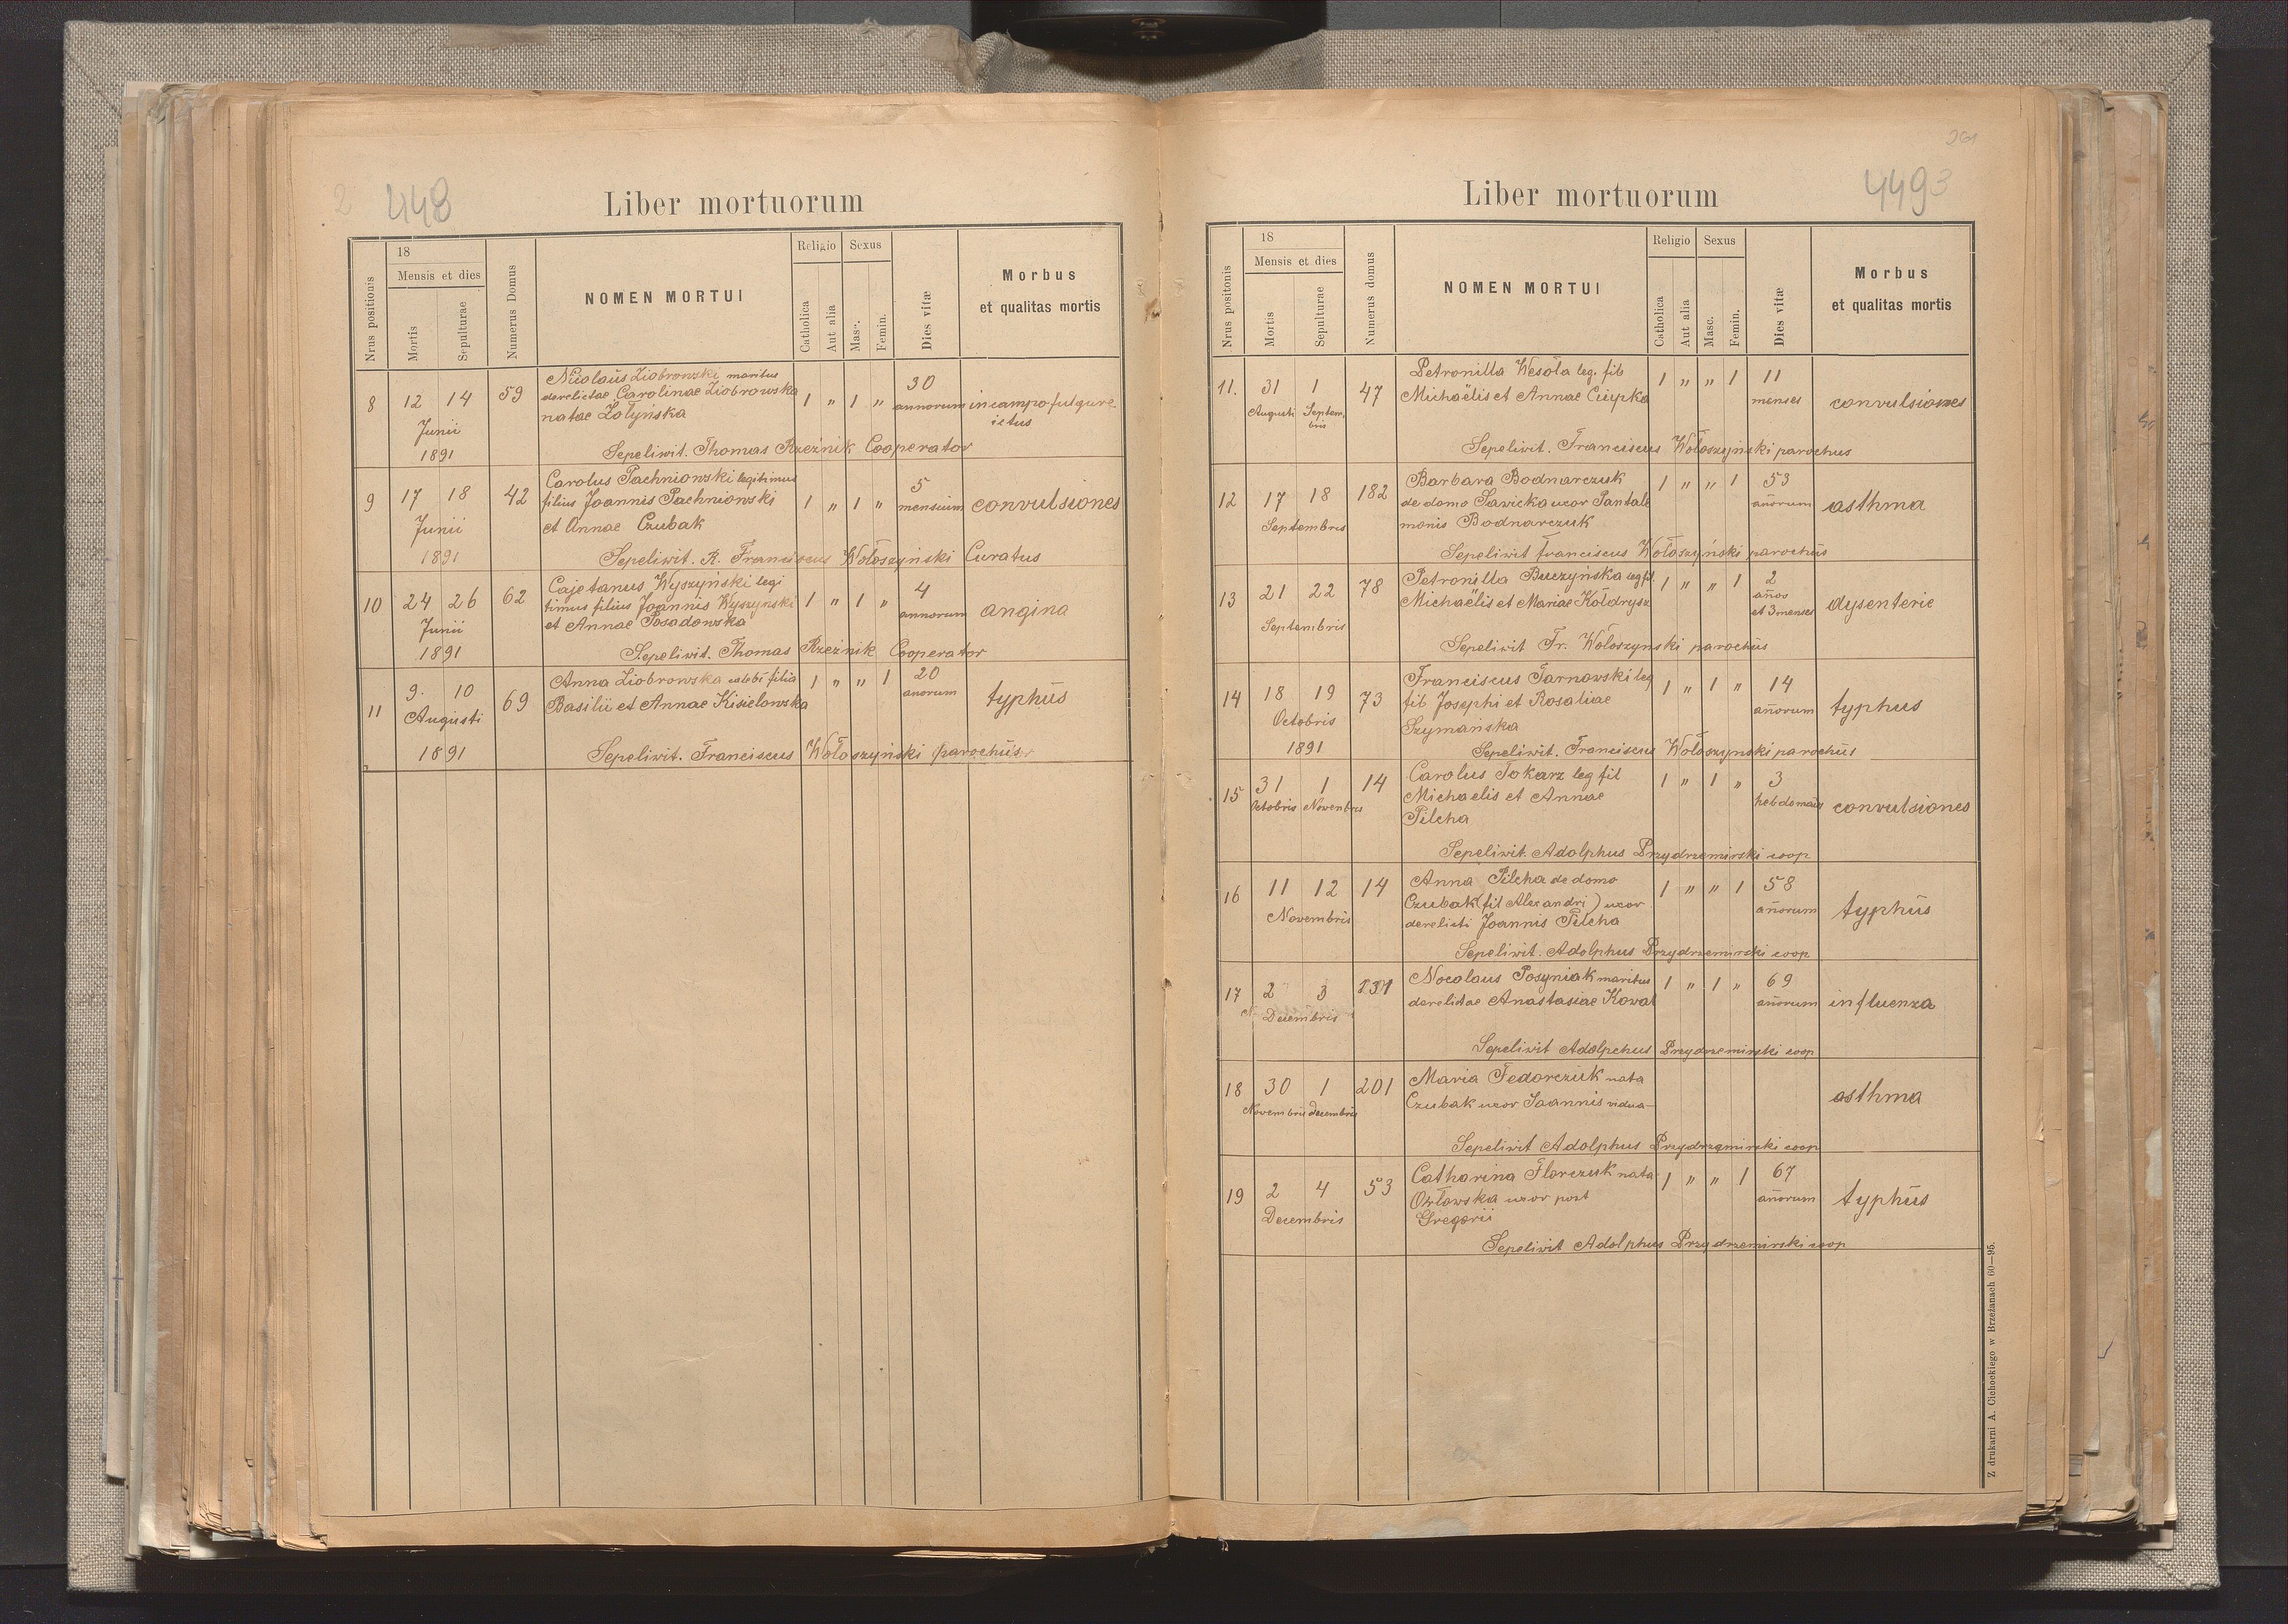 448
Liber mortuorum
Nrus positionis
18
Mensis et dies
Mortis
Sepulturae
Numerus Domus
NOMEN MORTUI
Religio
Catholica
Aut alia
Sexus
Masc.
Femin.
Dies vitæ
Morbus
et qualitas mortis
8 12 14 59 Nicolaus Ziobrowski maritus 1 " 1 " 30
derelictae Carolinae Ziobrowska annorum in campo fulgure
natae Żołyńska ictus
Junii
1891 Sepelivit. Thomas Rzeźnik Cooperator
9 17 18 42 Carolus Pachniowski legitimus 1 " 1 " 5
filius Joannis Pachniowski mensium convulsiones
et Annae Czubak
Junii
1891 Sepelivit. R. Franciscus Wołoszyński Curatus
10 24 26 62 Cajetanus Wyszyński legi 1 " 1 " 4
timus filius Joannis Wyszyński annorum angina
et Annae Posadowska
Junii
1891 Sepelivit. Thomas Rzeźnik Cooperator
11 9. 10 69 Anna Ziobrowska filia 1 " " 1 20
Augusti Basilii et Annae Kisielowska anorum typhus
1891 Sepelivit. Franciscus Wołoszyński parochus
261
4493
Liber mortuorum
Nrus positonis
18
Mensis et dies
Mortis
Sepulturae
Numerus domus
NOMEN MORTUI
Religio
Catholica
Aut alia
Sexus
Masc.
Femin.
Dies vitæ
Morbus
et qualitas mortis
11. 31 1 47 Petronilla Wesoła leg. fil 1 " " 1 11
Augusti Septem Michaëlis et Annae menses convulsiones
bris
Sepelivit. Franciscus Wołoszyński parochus
12 17 18 182 Barbara Bodnarczuk 1 " " 1 53
de domo Sawicka uxor Pantale añorum asthma
Septembris monis Bodnarczuk
Sepelivit Franciscus Wołoszyński parochus
13 21 22 78 Petronilla Buczyńska leg fil. 1 " " 1 2
Michaëlis et Mariae Kołdrysz años dysenterie
Septembris et 3 menses
Sepelivit Fr. Wołoszynski parochus
14 18 19 73 Franciscus Tarnowski leg 1 " 1 " 14
fil Josephi et Rosaliae añorum typhus
Octobris Szymańska
1891 Sepelivit. Franciscus Wołoszynski parochus
15 31 1 14 Carolus Tokarz leg fil 1 " 1 " 3
Octobris Novembris Michaelis et Annae convulsiones
Pilcha
Sepelivit. Adolphus Przydrzemirski coop
16 11 12 14 Anna Pilcha de domo 1 " " 1 58
Czubak (fil Alexandri) uxor añorum typhus
Novembris derelicti Joannis Pilcha
Sepelivit. Adolphus Przydrzemirski coop
17 2 3 Nocolaus Posyniak maritus 1 " 1 " 69
Decembris derelictae Anastasiae Kowal añorum influenza
Sepelivit Adolpchus Przydrzemirski coop
18 30 1 201 Maria Fedorczuk nata asthma
Novembris decembris Czubak uxor Joannis vidua
Sepelivit Adolphus Przydrzemirski coop
19 2 4 53 Catharina Florczuk nata 1 " " 1 67
Orłowska uxor post añorum typhus
Decembris Gregorii
Sepelivit Adolphus Przydrzemirski coop
Z drukarni A. Cichockiego w Brzeżanach 60—95.